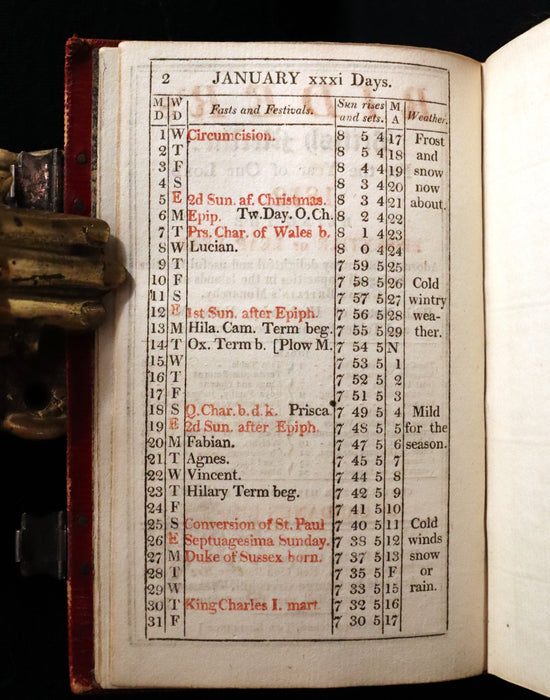 2 JANUARY xxxi Days.
M D W D Fasts and Festivals. Sun rises and sets. M A Weather.
1 W Circumcision. 8 5 4 17 Frost
2 T 8 5 4 18 and
3 F 8 4 4 19 snow
4 S 8 3 4 20 now
5 E 2d Sun. af. Christmas. 8 3 4 21 about.
6 M Epip. Tw.Day. O.Ch. 8 2 4 22
7 T Prs. Char. of Wales b. 8 1 4 23
8 W Lucian. 8 0 4 24
9 T 7 59 5 25
10 F 7 58 5 26 Cold
11 S 7 57 5 27 wintry
12 E 1st Sun. after Epiph. 7 56 5 28 wea-
13 M Hila. Cam. Term beg. 7 55 5 29 ther.
14 T Ox. Term b. [Plow M. 7 54 5 N
15 W 7 53 5 1
16 T 7 52 5 2
17 F 7 51 5 3
18 S Q.Char. b. d. k. Prisca 7 49 5 4 Mild
19 E 2d Sun. after Epiph. 7 48 5 5 for the
20 M Fabian. 7 47 5 6 season.
21 T Agnes. 7 45 5 7
22 W Vincent. 7 44 5 8
23 T Hilary Term beg. 7 42 5 9
24 F 7 41 5 10
25 S Conversion of St. Paul 7 40 5 11 Cold
26 E Septuagesima Sunday. 7 38 5 12 winds
27 M Duke of Sussex born. 7 37 5 13 snow
28 T 7 35 5 F or
29 W 7 33 5 15 rain.
30 T King Charles I. mart. 7 32 5 16
31 F 7 30 5 17